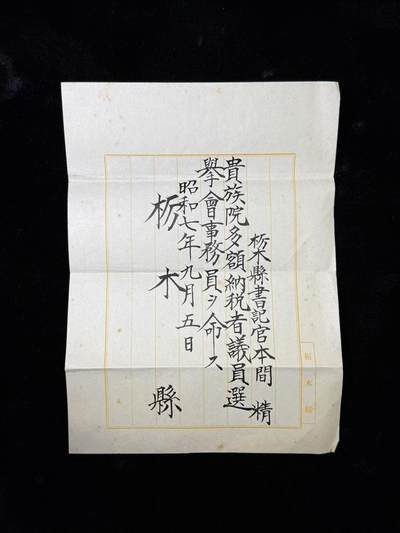 栃木縣書記官本間 精
貴族院多額納税者議員選
擧會事務員ヲ命ス
昭和七年九月五日
栃木 縣
栃木縣